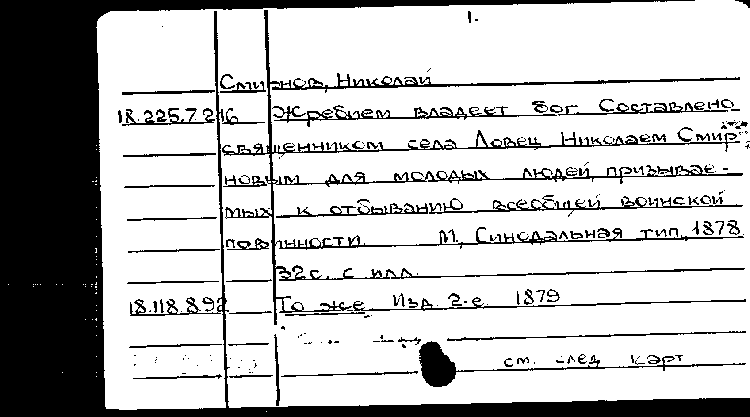 1.
Смирнов, Николай
18.225.7.216 Жребием владеет бог. Составлено
священником села Ловец Николаем Смир-
новым для молодых людей, призывае-
мых к отбыванию всеобщей воинской
повинности. М., Синодальная тип., 1878
32 с. с илл.
18.118.8.92 То же. Изд. 2-е. 1879
см. след. карт